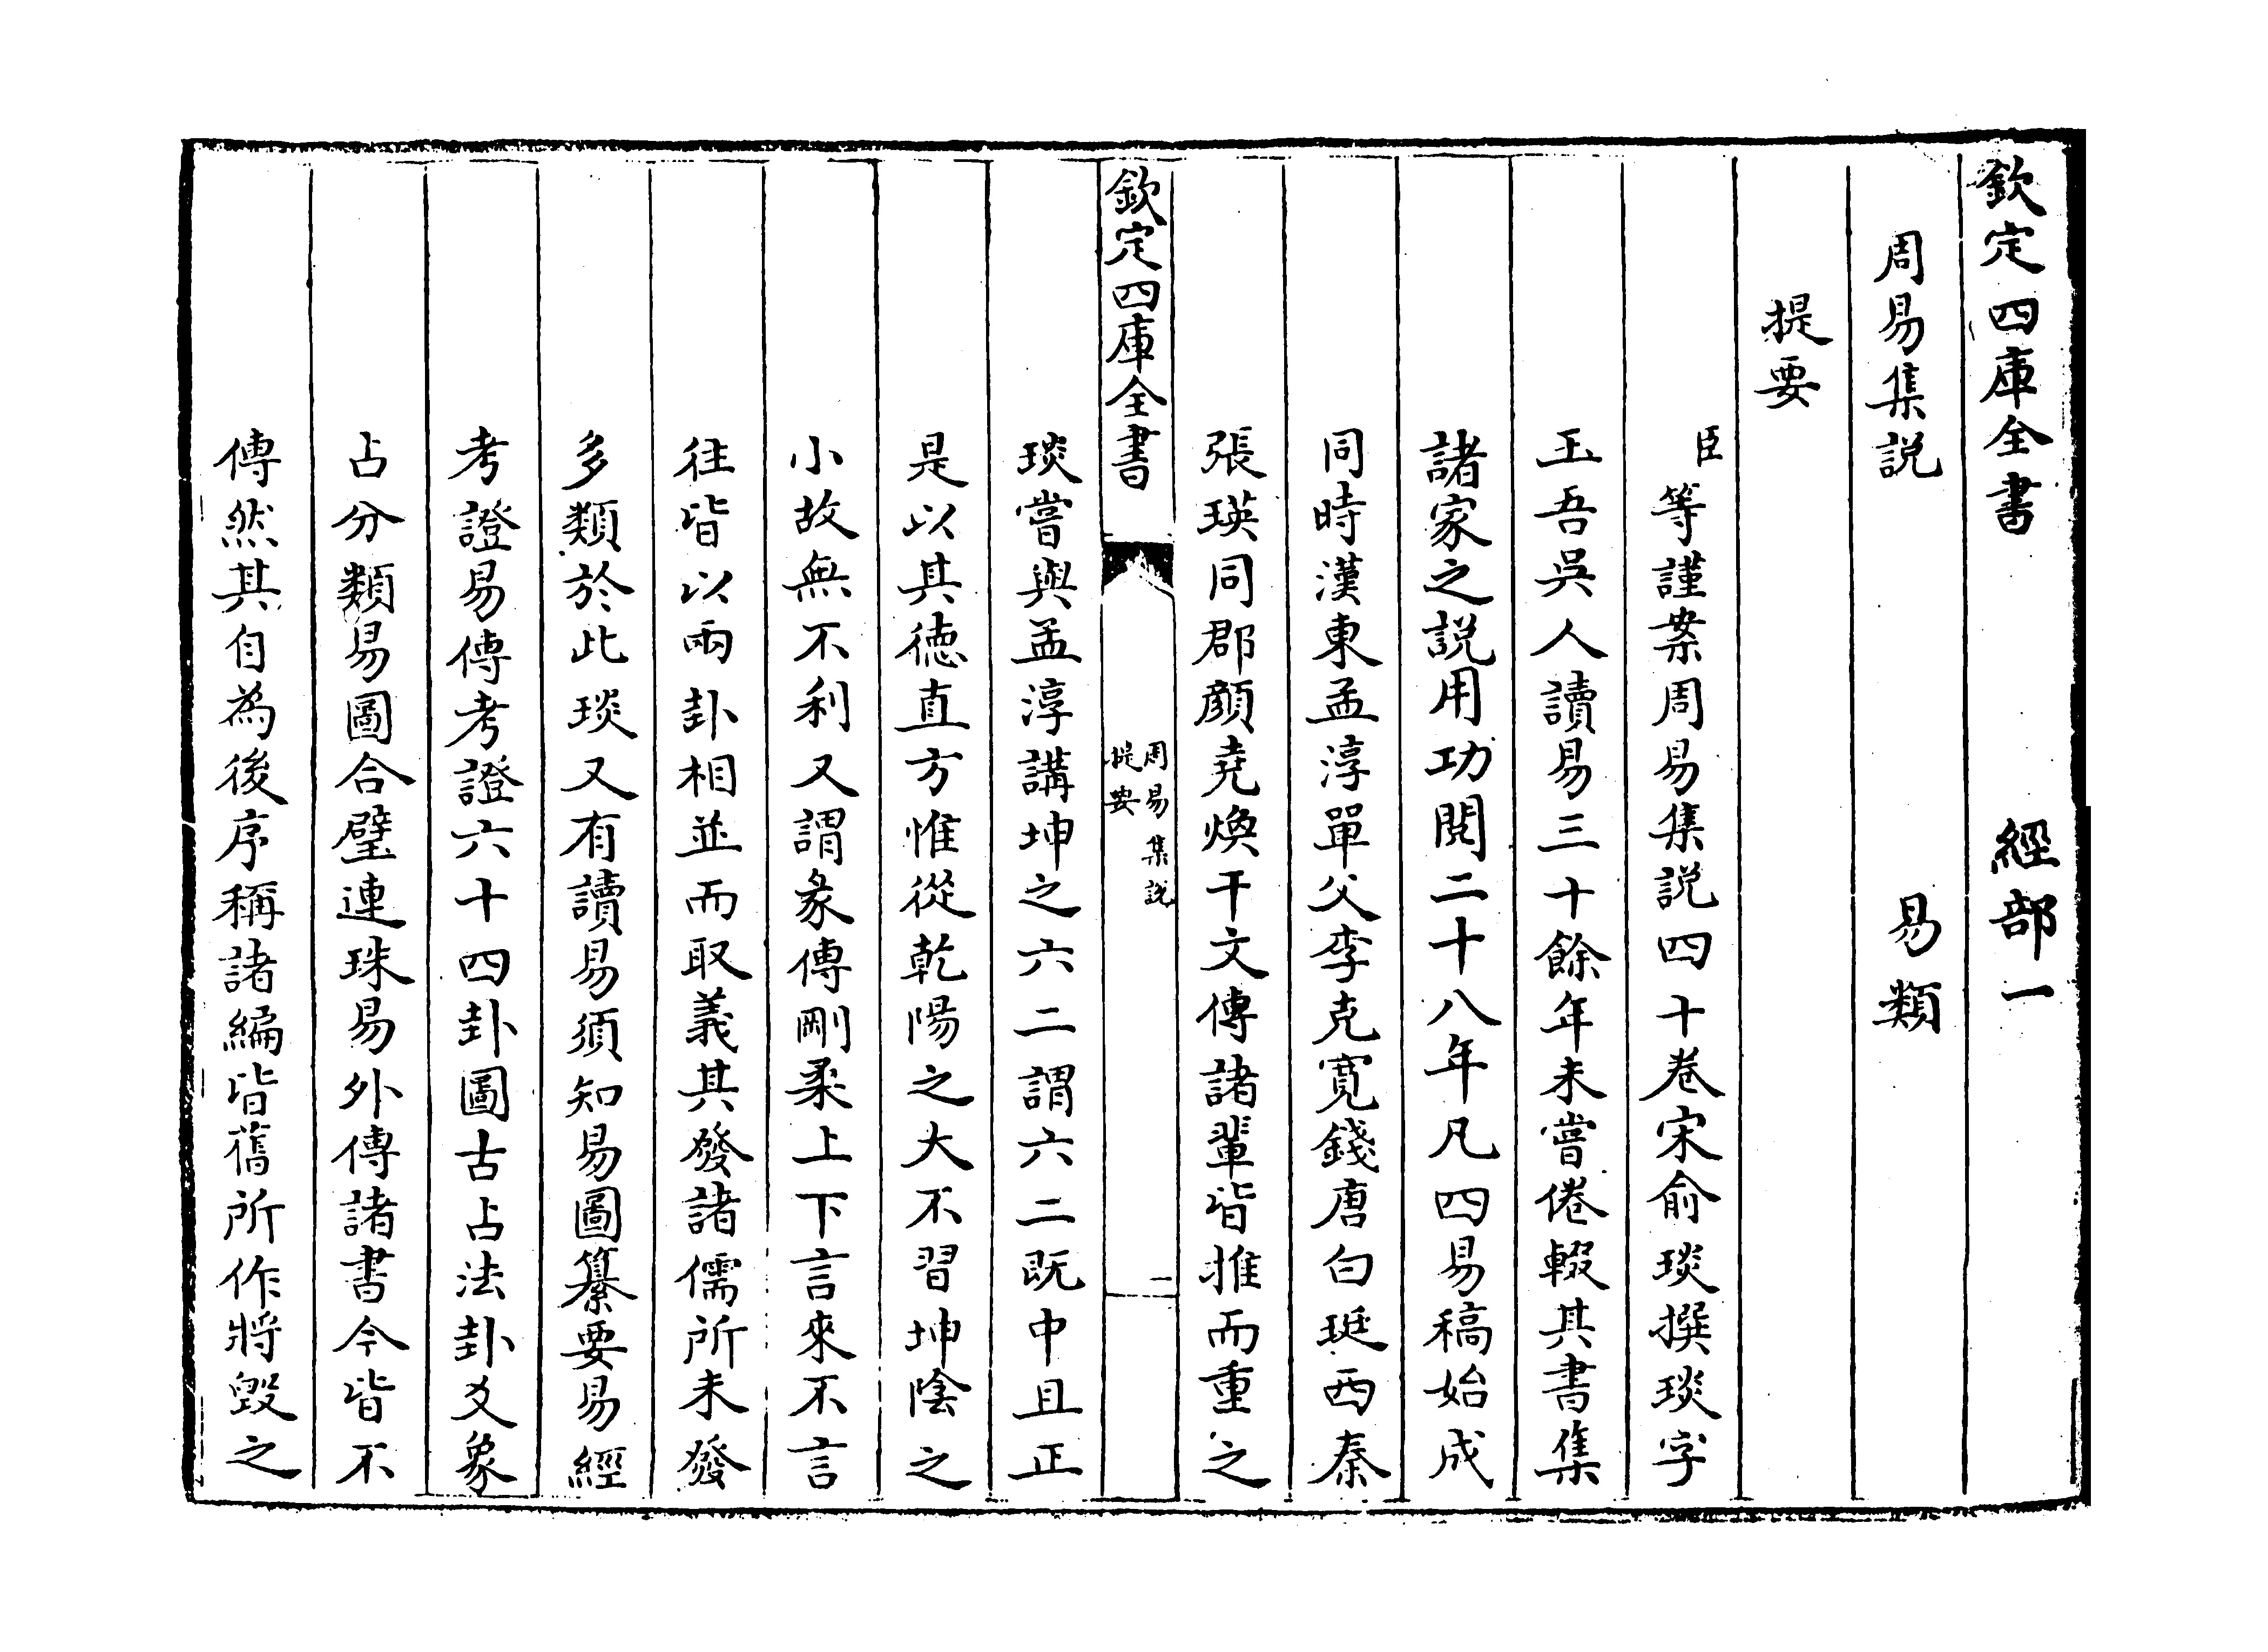 欽定四庫全書　經部一
周易集説　易類
提要
臣等謹案周易集説四十卷宋俞琰撰琰字
玉吾吳人讀易三十餘年未嘗倦輟其書集
諸家之説用功閱二十八年凡四易稿始成
同時漢東孟淳單父李克寛錢唐白珽西秦
張瑛同郡顔堯煥干文傳諸輩皆推而重之
欽定四庫全書　周易集説 提要　一
琰嘗與孟淳講坤之六二謂六二既中且正
是以其徳直方惟從乾陽之大不習坤陰之
小故無不利又謂彖傳剛柔上下言來不言
往皆以兩卦相並而取義其發諸儒所未發
多類於此琰又有讀易須知易圖纂要易經
考證易傳考證六十四卦圖古占法卦爻象
占分類易圖合璧連珠易外傳諸書今皆不
傳然其自為後序稱諸編皆舊所作將毀之